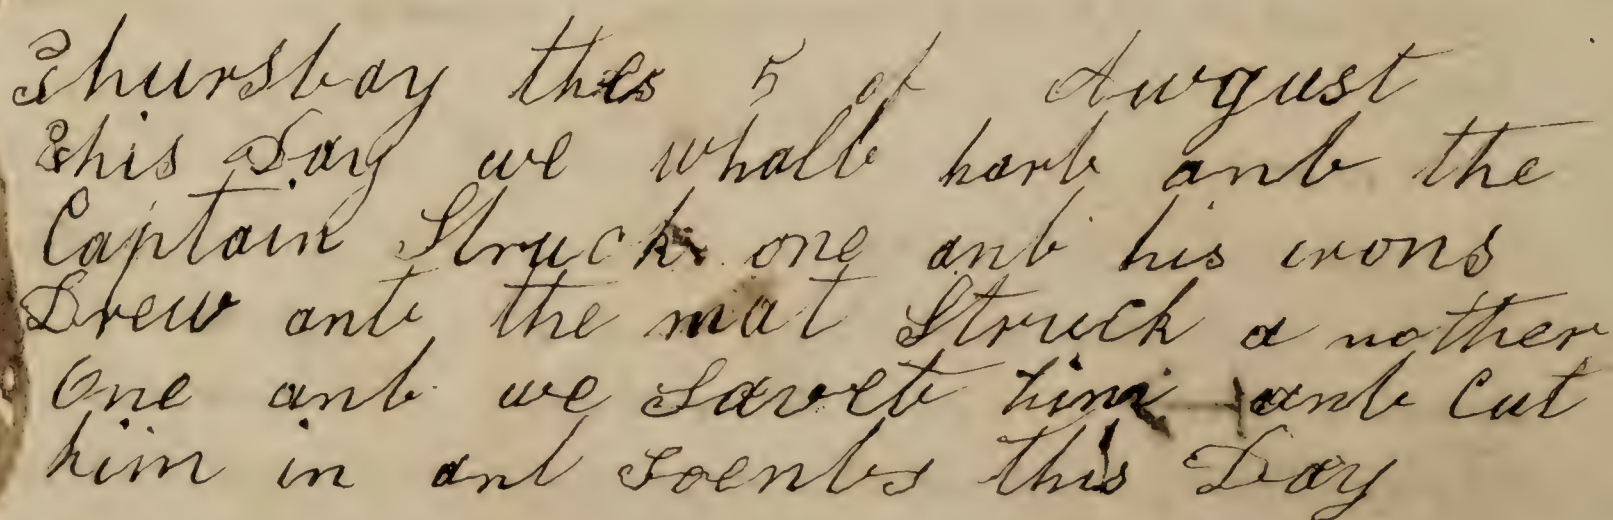 Thursday this 5 of August
This Day we whald hard and the
Captain Struck one and his irons
Drew and the mat Struck a nother
One and we Saved him and Cut
him in and soends this Day